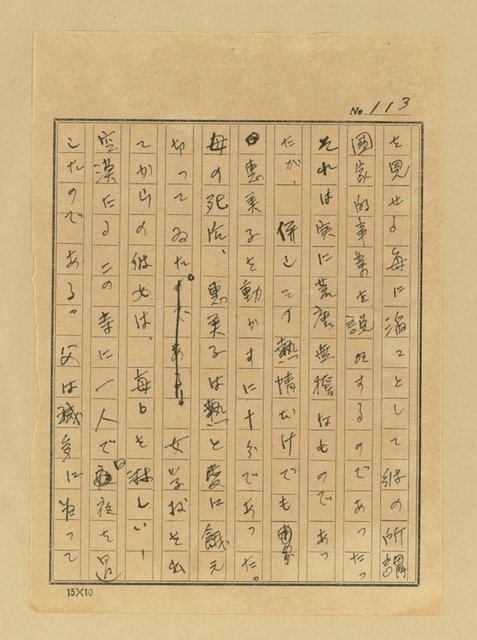 No. 113
を見せる毎に滔々として彼の所謂
国家的事業を説破するのであったっ
それは実に荒唐無稽なものであっ
たが、併しその熱情だけでも
恵美子を動かすに十分であった。
母の死后、恵美子は熱と愛に餓え
切ってゐた。女学校を出
てからの彼女は、毎日を淋しい
空漠たるこの寺に一人で夜を過
したのである。父は滅多に帰って
15×10